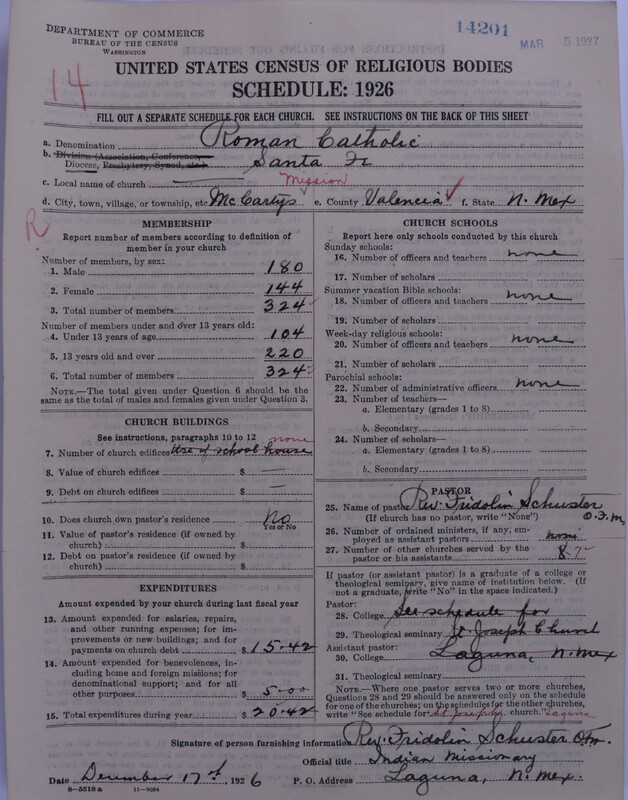 DEPARTMENT OF COMMERCE
BUREAU OF THE CENSUS
WASHINGTON
14201
MAR 5 1927
UNITED STATES CENSUS OF RELIGIOUS BODIES
SCHEDULE: 1926
14
FILL OUT A SEPARATE SCHEDULE FOR EACH CHURCH. SEE INSTRUCTIONS ON THE BACK OF THIS SHEET
a. Denomination Roman Catholic
b. Division (Association, Conference,
Diocese, Presbytery, Synod, etc.) Santa Fe
c. Local name of church Mission
d. City, town, village, or township, etc. McCartys e. County Valencia f. State N. Mex
R
MEMBERSHIP
Report number of members according to definition of
member in your church
Number of members, by sex:
1. Male 180
2. Female 144
3. Total number of members 324
Number of members under and over 13 years old:
4. Under 13 years of age 104
5. 13 years old and over 220
6. Total number of members 324
NOTE.—The total given under Question 6 should be the
same as the total of males and females given under Question 3.
CHURCH BUILDINGS
See instructions, paragraphs 10 to 12 none
7. Number of church edifices Use of school house
8. Value of church edifices $
9. Debt on church edifices $ —
10. Does church own pastor's residence No
Yes or No
11. Value of pastor's residence (if owned by
church) $
12. Debt on pastor's residence (if owned by
church) $
EXPENDITURES
Amount expended by your church during last fiscal year
13. Amount expended for salaries, repairs,
and other running expenses; for im-
provements or new buildings; and for
payments on church debt $ 15.42
14. Amount expended for benevolences, in-
cluding home and foreign missions; for
denominational support; and for all
other purposes $ 5.00
15. Total expenditures during year $ 20.42
CHURCH SCHOOLS
Report here only schools conducted by this church
Sunday schools:
16. Number of officers and teachers none
17. Number of scholars
Summer vacation Bible schools:
18. Number of officers and teachers none
19. Number of scholars
Week-day religious schools:
20. Number of officers and teachers none
21. Number of scholars
Parochial schools:
22. Number of administrative officers none
23. Number of teachers—
a. Elementary (grades 1 to 8)
b. Secondary
24. Number of scholars—
a. Elementary (grades 1 to 8)
b. Secondary
PASTOR
25. Name of pastor Rev. Fridolin Schuster
(If church has no pastor, write "None") O.F.M.
26. Number of ordained ministers, if any, em-
ployed as assistant pastors none
27. Number of other churches served by the
pastor or his assistants 8 7
If pastor (or assistant pastor) is a graduate of a college or
theological seminary, give name of institution below. (If
not a graduate, write "No" in the space indicated.)
Pastor:
28. College See schedule for
29. Theological seminary St. Joseph Church
Assistant pastor:
30. College Laguna, N. Mex
31. Theological seminary
NOTE.—Where one pastor serves two or more churches,
Questions 28 and 29 should be answered only on the schedule
for one of the churches; on the schedules for the other churches,
write "See schedule for St. Joseph's church." Laguna
Signature of person furnishing information Rev. Fridolin Schuster O.F.M.
Official title Indian Missionary
Date December 17th, 1926 P. O. Address Laguna, N. Mex.
8—5518 a 11—9064